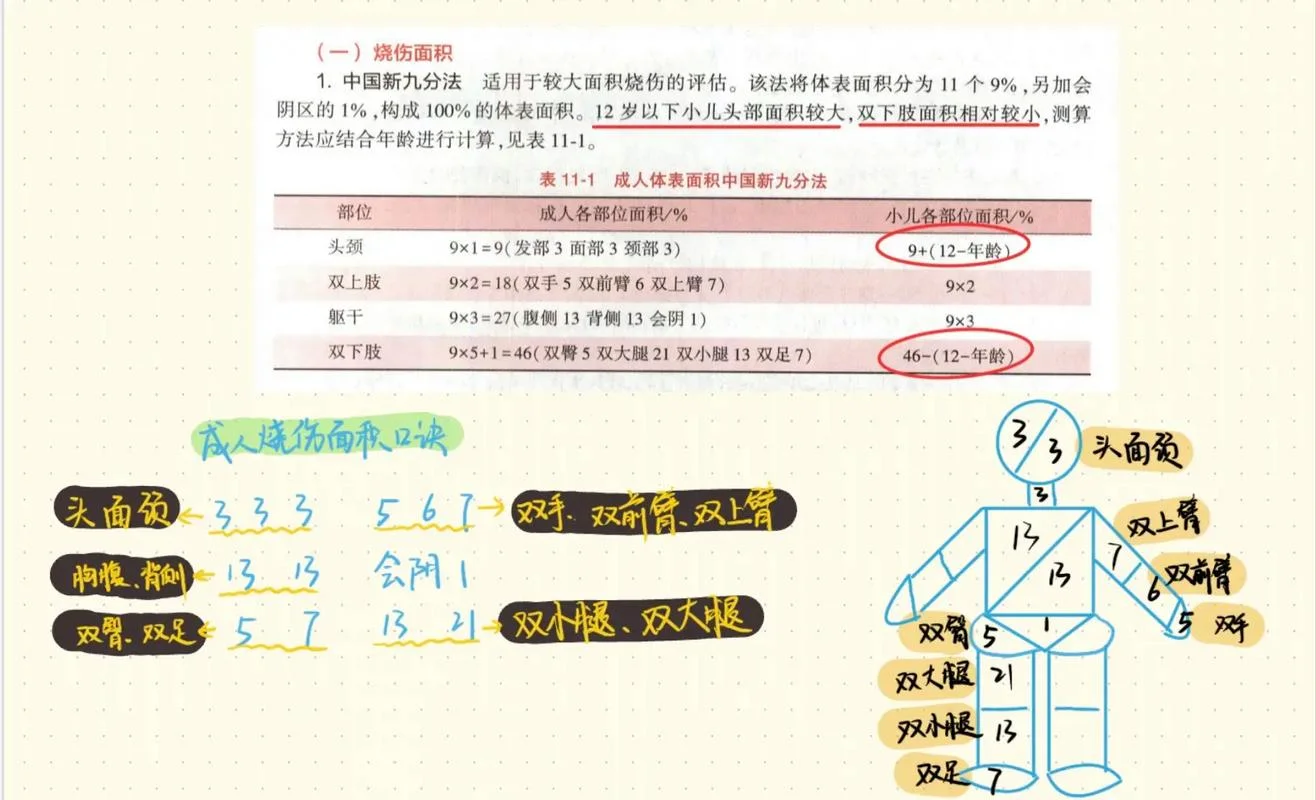 （一）烧伤面积
1. 中国新九分法 适用于较大面积烧伤的评估。该法将体表面积分为 11 个 9%，另加会
阴区的 1%，构成 100% 的体表面积。12 岁以下小儿头部面积较大，双下肢面积相对较小，测算
方法应结合年龄进行计算，见表 11-1。
表 11-1 成人体表面积中国新九分法
部位 成人各部位面积/% 小儿各部位面积/%
头颈 9×1=9(发部 3 面部 3 颈部 3) 9+(12-年龄)
双上肢 9×2=18(双手 5 双前臂 6 双上臂 7) 9×2
躯干 9×3=27(腹侧 13 背侧 13 会阴 1) 9×3
双下肢 9×5+1=46(双臀 5 双大腿 21 双小腿 13 双足 7) 46-(12-年龄)
成人烧伤面积口诀
头面颈 3 3 3 5 6 7 双手、双前臂、双上臂
胸腹、背侧 13 13 会阴 1
双臀、双足 5 7 13 21 双小腿、双大腿
3 3 头面颈
3
13 13
7 双上臂
6 双前臂
5 双手
双臀 5 1
双大腿 21
双小腿 13
双足 7